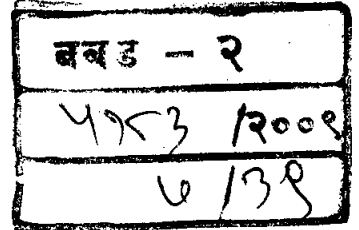 बबड - २
५१८३ /२००९
७ /३९